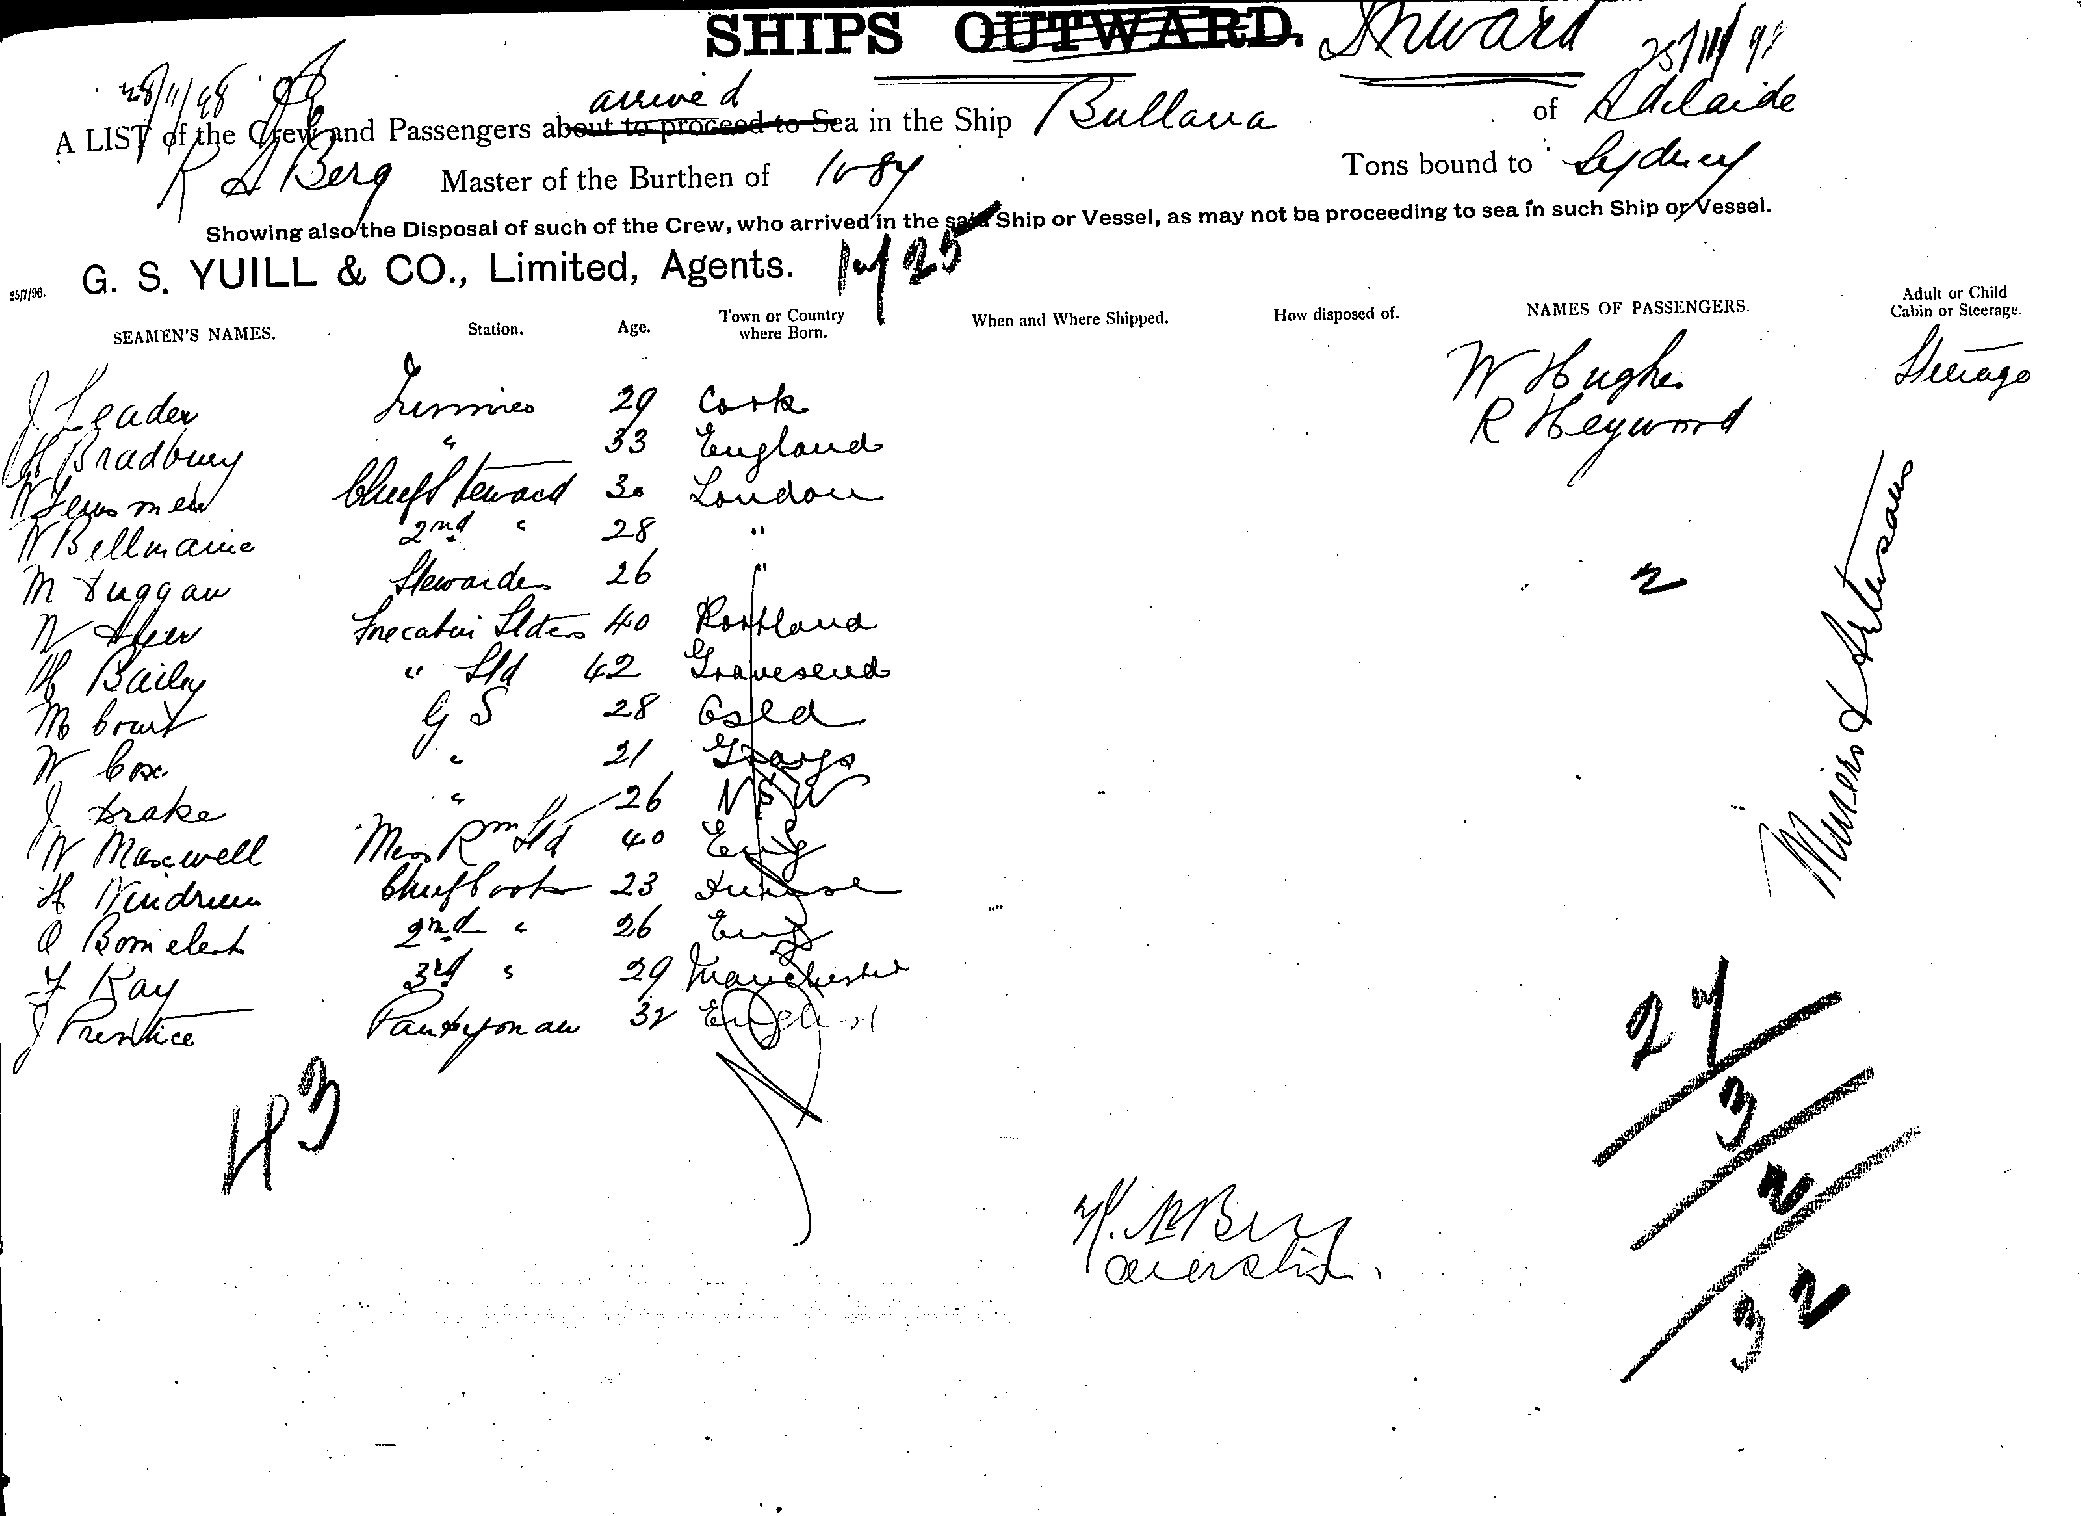 SHIPS OUTWARD. Inward
arrived
A LIST of the Crew and Passengers about to proceed to Sea in the Ship Bullara of Adelaide
Berg Master of the Burthen of Tons bound to Sydney
Showing also the Disposal of such of the Crew, who arrived in the said Ship or Vessel, as may not be proceeding to sea in such Ship or Vessel.
G. S. YUILL & CO., Limited, Agents.
25/7/98.
SEAMEN'S NAMES. Station. Age. Town or Country where Born. When and Where Shipped. How disposed of. NAMES OF PASSENGERS. Adult or Child Cabin or Steerage.
W Hughes Steerage
J Leader Trimmer 29 Cork
R Heywood
H Bradbury " 33 England
Chief Steward 30 London
W Bellmaine 2nd " 28 "
M Duggan Stewardess 26 "
2
W 40 Portland
H Bailey " Std 42 Gravesend
M Court G S 28
W Cox " 21 Grays
J Drake " 26 N S W
W Maxwell Mess Rm Std 40 Eng
H Chief Cook 23
2nd " 26 Eng
F Kay 3rd " 29 Manchester
J Prentice Pantryman 32 England
43
27
3
2
32